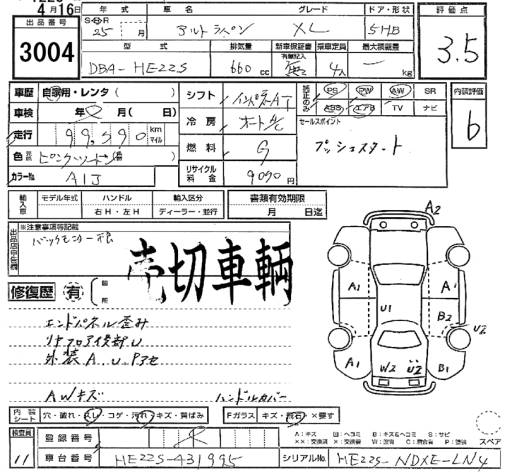 4月16日
出品番号 年式 車名 グレード ドア・形状 評価点
3004 S・H・R 25 年 月 アルトラパン XL 5HB 3.5
型式 排気量 新車保証書 乗車定員 最大積載量
DBA-HE22S 660 cc 有無記入 4人 kg
車歴 自家用・レンタ( ) シフト インパネAT PS PW AW SR 内装評価
車検 年 月( 日) ABS エアB TV ナビ 6
走行 99,590 km マイル 冷房 オートAC セールスポイント
色 燃料 G プッシュスタート
カラーNo A1J リサイクル料金 9090円
輸入車 モデル年式 ハンドル 輸入区分 書類有効期限
年 右H・左H ディーラー・並行 月 日迄
※注意事項等記載
売切車輌
修復歴 有 個所
エンドパネル歪み
リヤフロア後部U
外装A.U.P3セ
AWキズ ハンドルカバー
A2
A1 A1
U1 B2
U2
A1 W2 U2 B1
内装シート 穴・破れ・スレ・コゲ・汚れ・キズ・黄ばみ Fガラス キズ・飛石・×要す
A:キズ U:ヘコミ B:キズ&ヘコミ S:サビ
スペア
検査員 11 登録番号
車台番号 HE22S-431995 シリアルNo. HE22S-NDXE-LN4